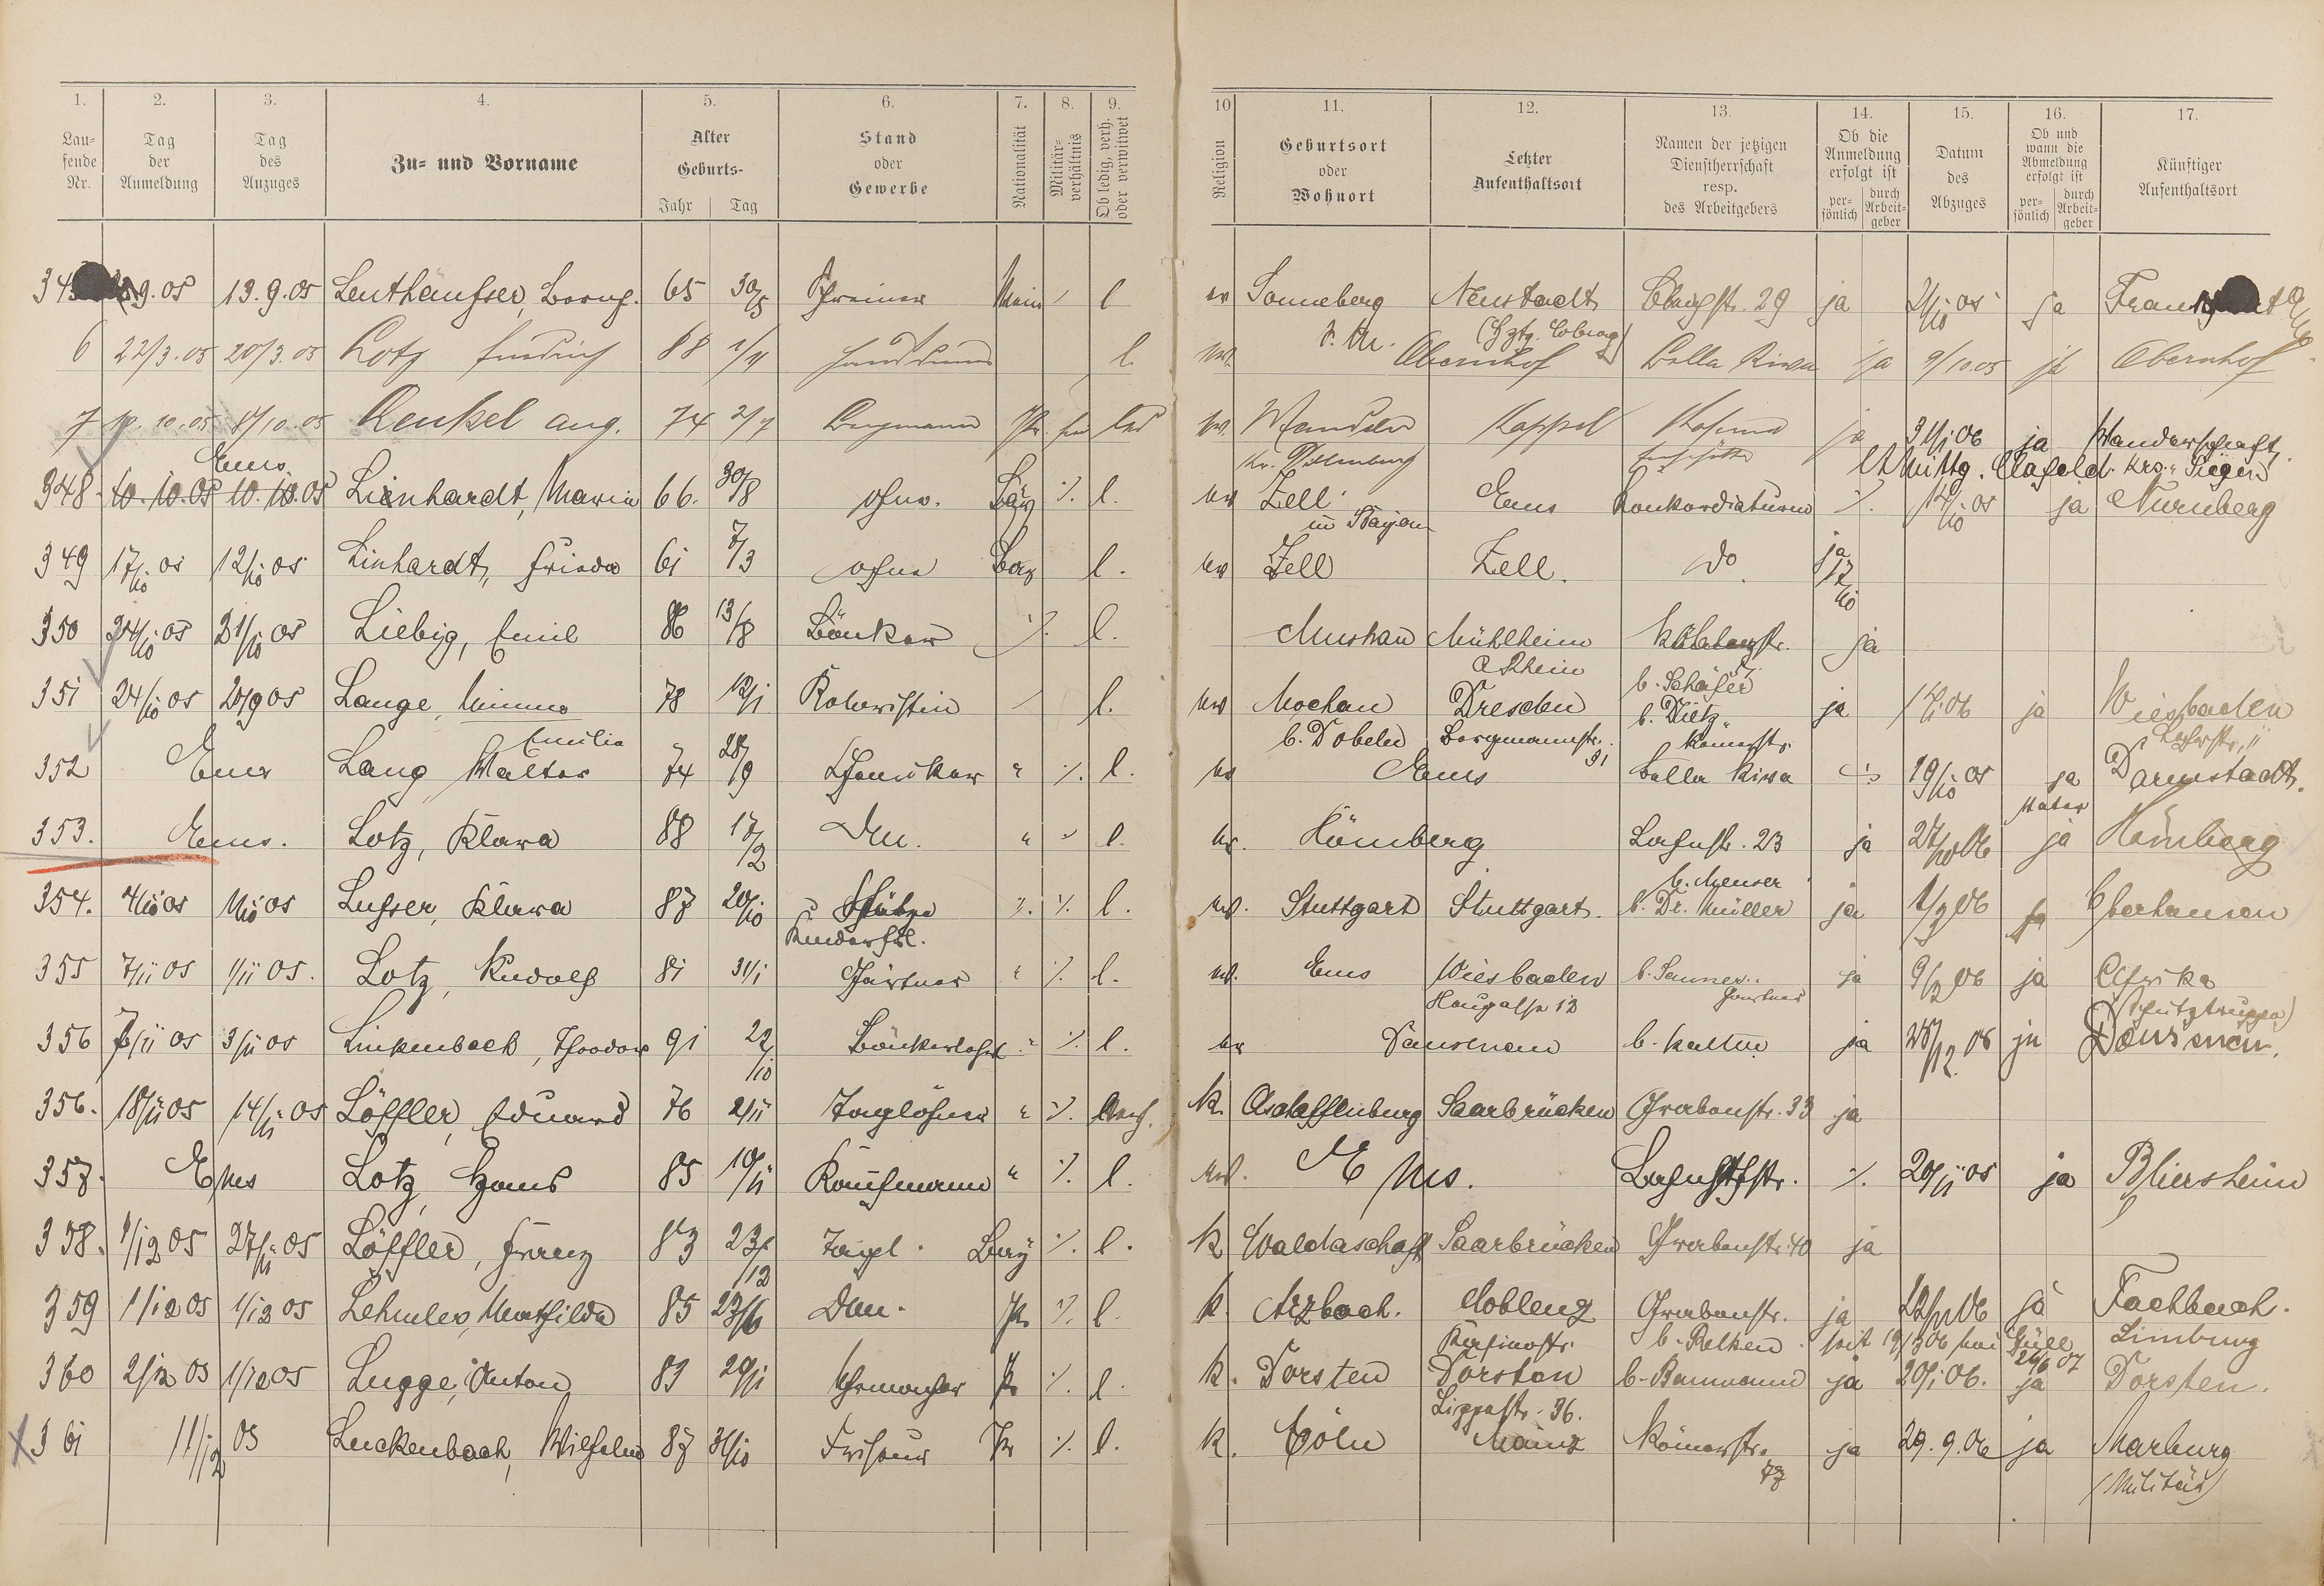 1. 2. 3. 4. 5. 6. 7. 8. 9. 10 11. 12. 13. 14. 15. 16. 17.
Lau-
fende
Nr.
Tag
der
Anmeldung
Tag
des
Anzuges
Zu- und Vorname
Alter
Geburts-
Jahr Tag
Stand
oder
Gewerbe
Nationalität
Militär-
verhältnis
Ob ledig, verh.
oder verwitwet
Religion
Geburtsort
oder
Wohnort
Letzter
Aufenthaltsort
Namen der jetzigen
Dienstherrschaft
resp.
des Arbeitgebers
Ob die
Anmeldung
erfolgt ist
per-
sönlich
durch
Arbeit-
geber
Datum
des
Abzuges
Ob und
wann die
Abmeldung
erfolgt ist
per-
sönlich
durch
Arbeit-
geber
Künftiger
Aufenthaltsort
9.05 13.9.05 Leuthäußer, 65 30/5 l ev Sonneberg Neustadt 29 ja 2/10 05 ja
(Hzgt. Coburg)
6 22/3.05 20/3.05 Lotz Friedrich 88 l. ev. Obernhof Bella Riva ja 9/10.05 ja Obernhof
7 10.05 8/10.05 Lenkel Aug. 74 2/7 Bergmann led ev. Kappel ja 31/1 06 ja Wanderschaft
Kr. Dillenburg lt Mittg. Krs. Siegen
Ems
348 10.10.05 10.10.05 Lienhardt, Maria 66. 30/8 ohne. Bay ٪. l. ev Zell Ems Konkordiaturm ٪. 14/10 05 ja Nürnberg
in Bayern
349 17/10 05 12/10 05 Linhardt, Frieda 61 7/3 ohne Bay l. ev Zell Zell. do ja 17/10
350 24/10 05 21/10 05 Liebig, Emil 86 13/8 Bäcker ٪. l. Muskau Mühlheim Koblenzstr. ja
a Rhein
57
b. Schäfer
351 24/10 05 20/9 05 Lange, Minna 78 12/1 Kochin l. ev Mochau Dresden b. Dietz ja 06 ja Wiesbaden
Emilie b. Döbeln Borgmannstr. Römerstr.
31
352 Ems Lang Walter 74 28/9 Chemiker " ٪. l. ev Ems Bella Riva 19/10 05 ja Darmstadt.
Vater
353. Ems. Lotz, Klara 88 17/2 Dm. " ٪ l. ev. Hömberg Lahnstr. 23 ja 06 ja Hömberg
b. Menser
354. 4/10 05 1/10 05 Lußer, Klara 87 20/10 Stütze ٪. ٪. l. ev. Stuttgart Stuttgart. b. Dr. Müller ja 06 ja Oberhausen
Kinderfrl.
355 7/11 05 1/11 05. Lotz, Rudolf 81 31/1 Gärtner " ٪. l. ev. Ems Wiesbaden b. Sanner ja 9/3 06 ja Afrika
12 Gärtner (Schutztruppe)
356 7/11 05 3/11 05 Linkenbach, Theodor 91 22/10 Bäckerlehrl " ٪. l. ev Dausenau b. ja 28/12 06 ja Dausenau.
356. 18/11 05 14/11 05 Löffler, Eduard 76 2/11 Taglöhner " ٪. verh. k. Aschaffenburg Saarbrücken Grabenstr. 33 ja
357. Ems Lotz, Hans 85 10/11 Kaufmann " ٪. l. ev. Ems. Lahnstr. ٪. 20/11 05 ja Bliersheim
358. 1/12 05 27/11 05 Löffler, Franz 83 23/12 Tagl. Bay ٪. l. k Waldaschaff Saarbrücken Grabenstr. 40 ja
359 1/12 05 1/12 05 Lehmler, Mathilde 85 23/6 Dm. Pr. ٪. l. k. Arzbach. Coblenz Grabenstr. ja 06 ja Fachbach.
Kasinostr. b. Relken. seit 19/3 06 bei Limburg
26/6 07
360 2/12 05 1/12 05 Lugge, Anton 83 20/1 Uhrmacher Pr ٪. l. k. Dorsten Dorsten b. Bammann ja 20/1 06. ja Dorsten.
Lippestr. 36.
361 11/12 05 Luckenbach, Wilhelm 87 31/10 Friseur Pr ٪. l. k. Cöln Mainz Römerstr. ja 29.9.06 ja Marburg
77 (Militär)